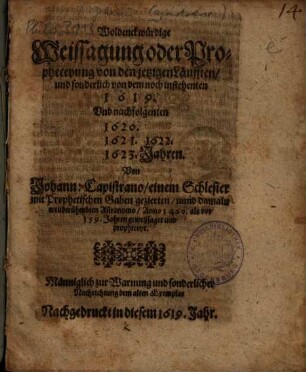 14
Woldenckwürdige
Weissagung oder Pro-
pheceyung von den jetzigen Läufften/
und sonderlich von dem noch instehenten
1619.
Und nachfolgenten
1620.
1621. 1622.
1623. Jahren.
Von
Johann: Capistrano/ einem Schlesier
mit Prophetischen Gaben gezierten/ unnd damals
Astronomo/ Anno 1460. als vor
159. Jahren geweissaget und
propheceyt.
Männiglich zur Warnung und sonderlicher
Nachrichtung dem alten Exemplar
Nachgedruckt in diesem 1619. Jahr.